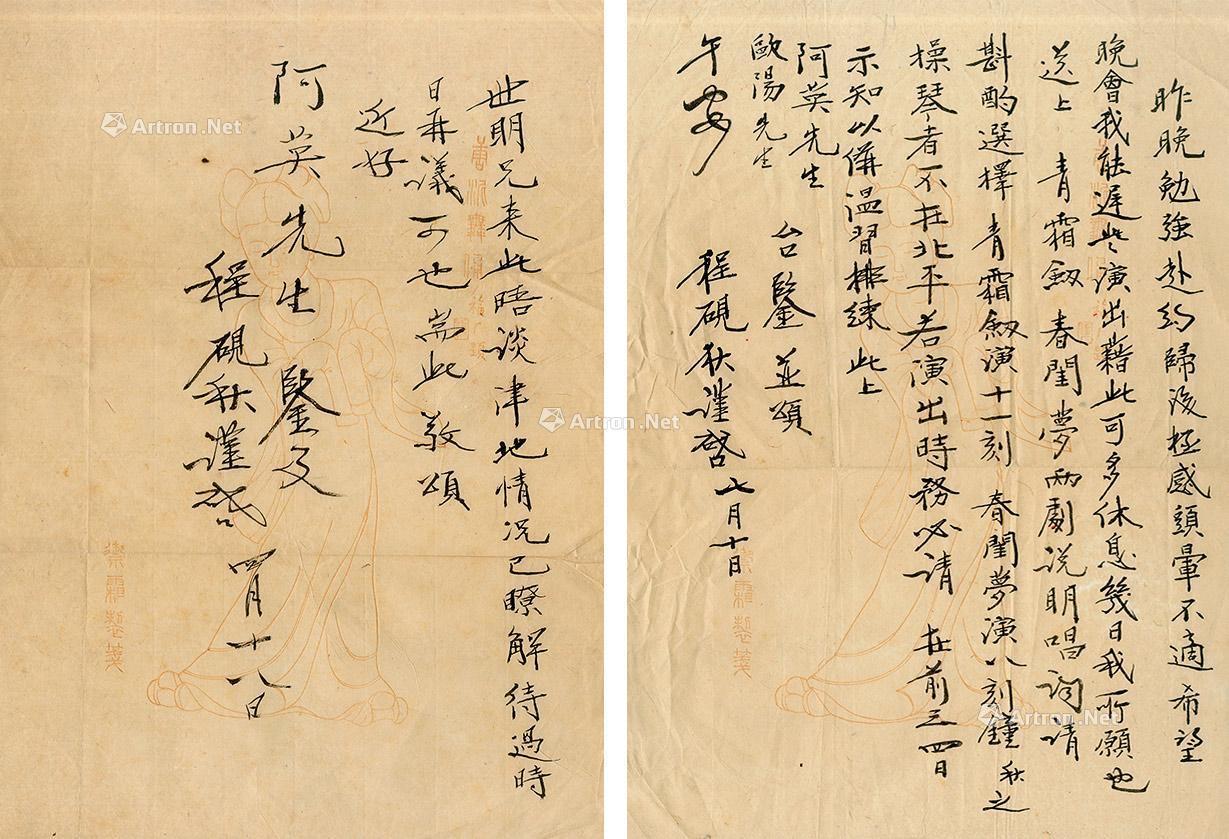 昨晚勉強赴約歸後極感頭暈不適希望
晚會我能遲些演出藉此可多休息幾日我所願也
送上 青霜劔 春閨夢兩劇説明唱詞請
斟酌選擇 青霜劔演十一刻 春閨夢演八刻鐘 秋之
操琴者不在北平若演出時務必請 在前三四日
示知以俻溫習排練 此上
阿英先生
歐陽先生
台鑒 並頌
午安
程硯秋謹啓 七月十日
世明兄来此晤谈津地情况已瞭解待過時
日再議可也 耑此 敬頌
近好
阿英先生 鑒及
程硯秋謹啓 四月十八日
禦霜製箋
禦霜製箋
Artron.Net
Artron.Net
Artron.Net
Artron.Net